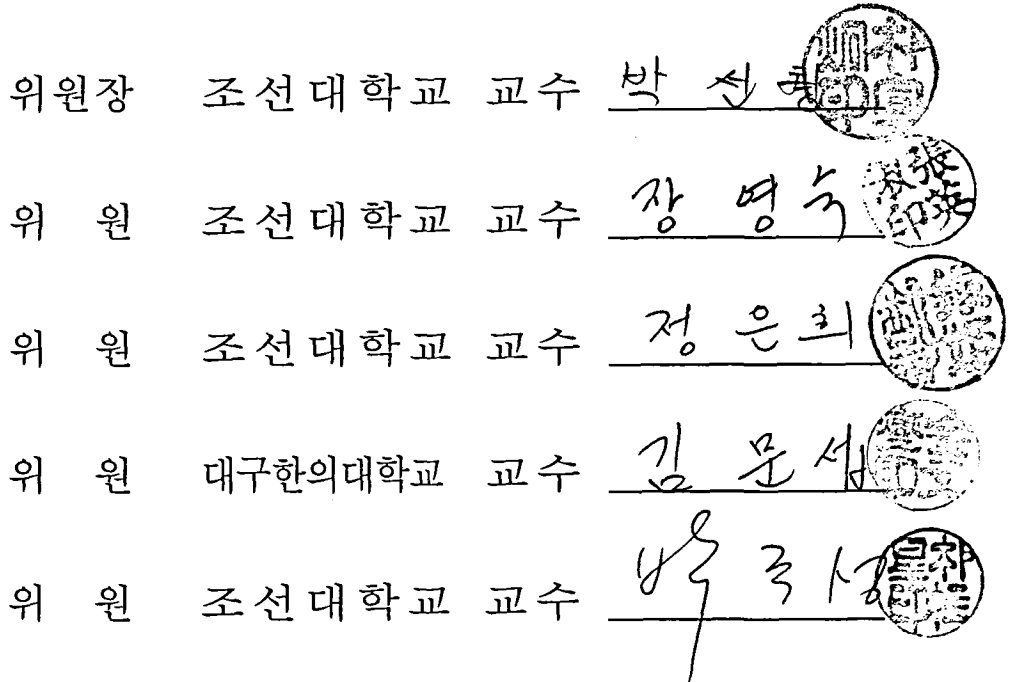 위원장 조선대학교 교수 박 선
위 원 조선대학교 교수 장 영 숙
위 원 조선대학교 교수 정 은 희
위 원 대구한의대학교 교수 김 문 섭
위 원 조선대학교 교수